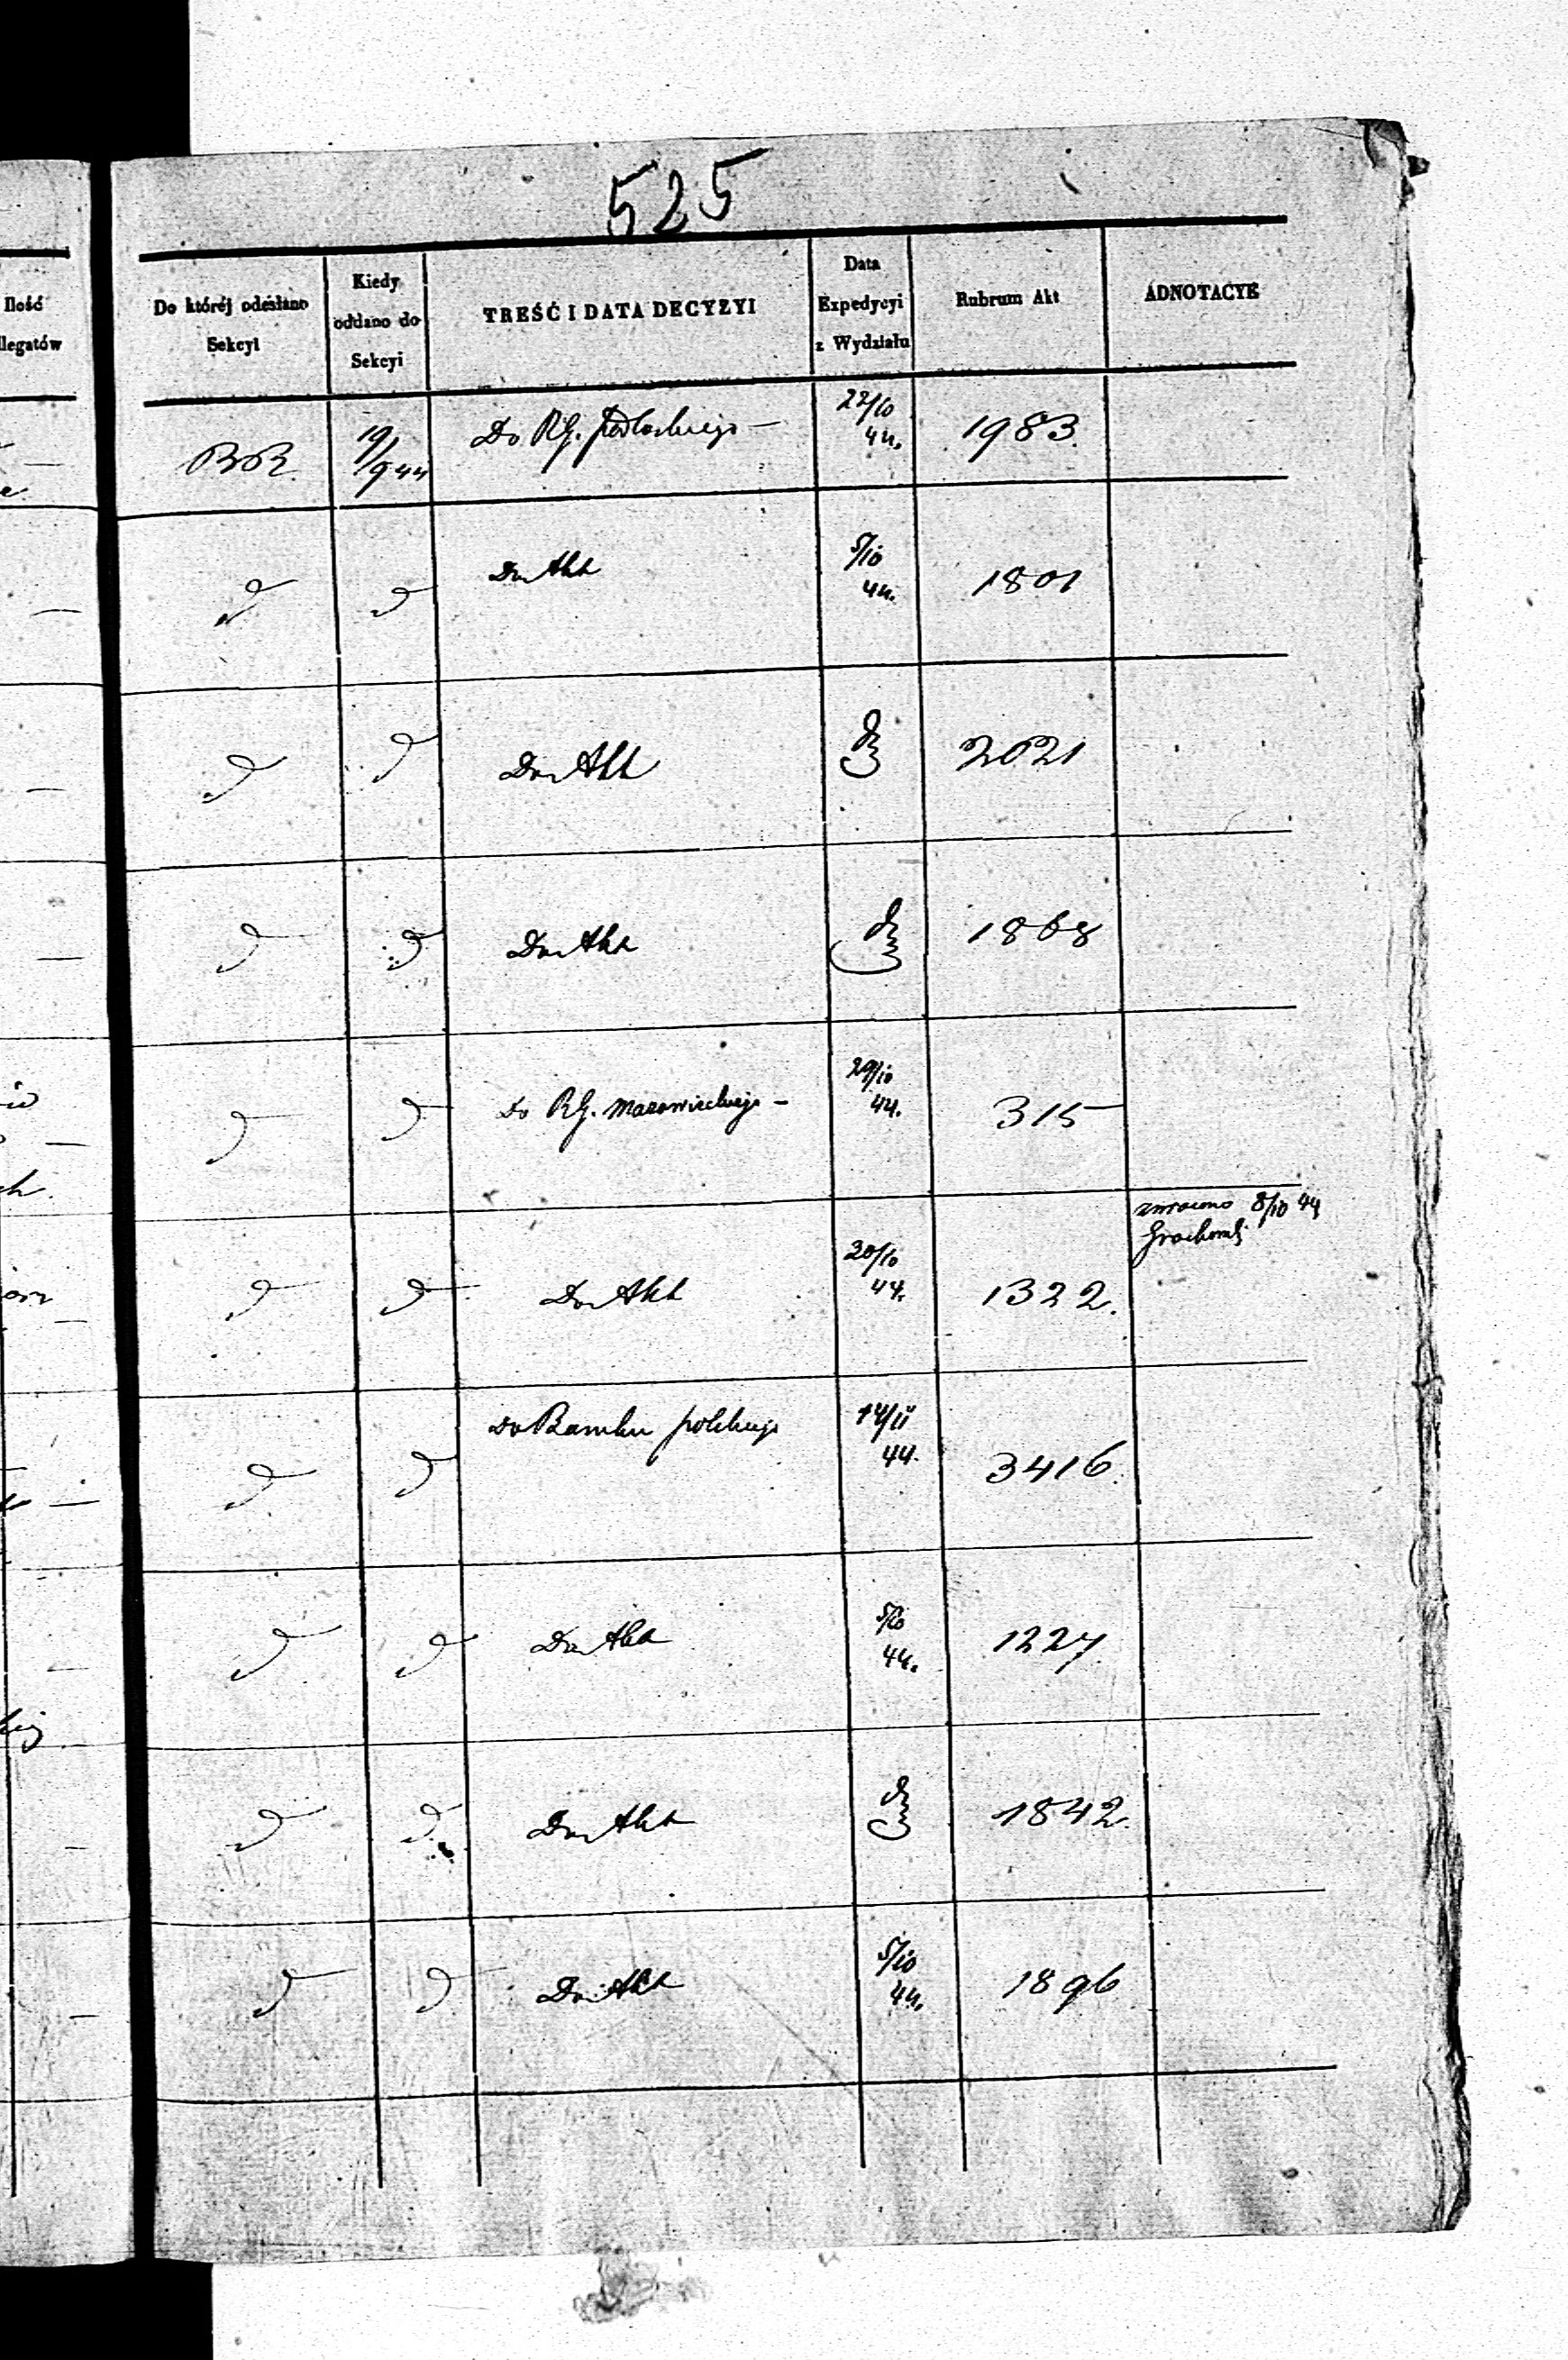 525
Ilość
llegatów
Do któréj odesłano
Sekcyi
Kiedy
oddano do
Sekcyi
TREŚĆ I DATA DECYZYI
Data
Expedycyi
z Wydziału
Rubrum Akt
ADNOTACYE
BR 19/9 44 Do RG. Podlaskiego — 22/10 44. 1983.
d d Do Akt 5/10 44. 1801
d d Do Akt d 2021
d d Do Akt d 1868
d d Do RG. Mazowieckiego — 29/10 44. 315
zwrócono 8/10 44
d d Do Akt 44. 1322.
d d Do Banku polskiego 14/11 44. 3416.
d d Do Akt 5/10 44. 1227
d d Do Akt d 1842.
d d Do Akt 5/10 44. 1896